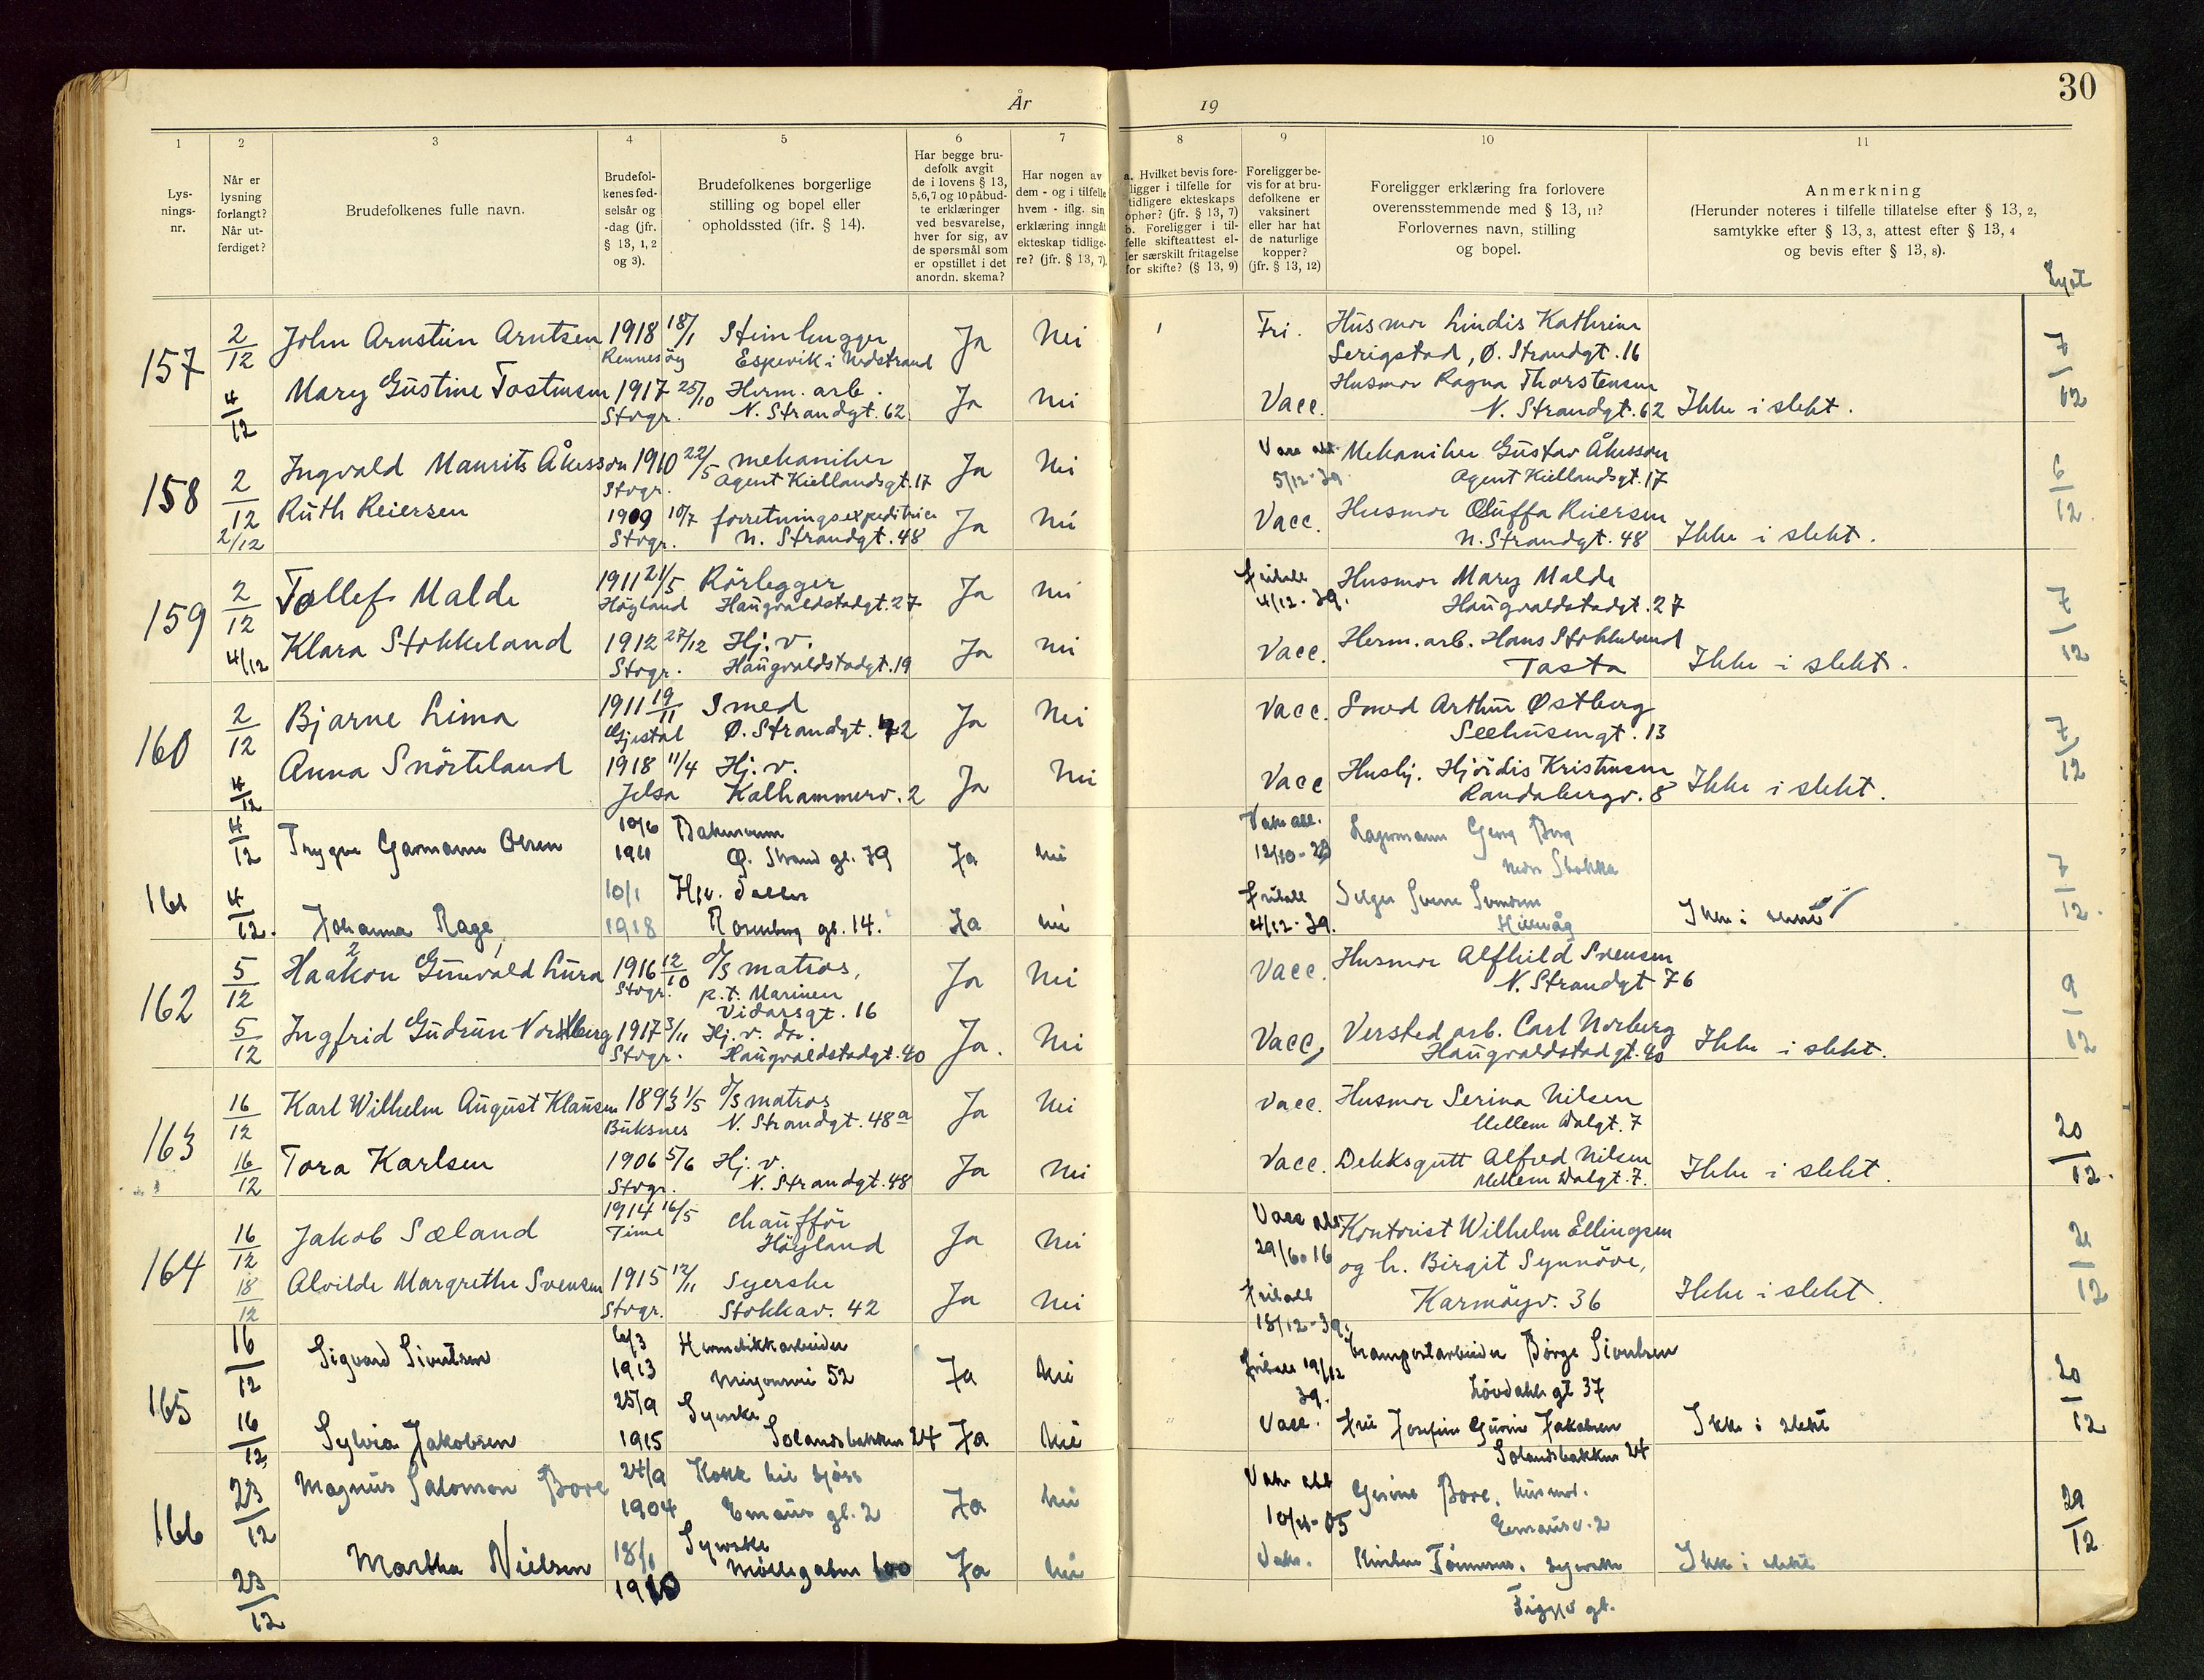 År 19
30
1 2 3 4 5 6 7 8 9 10 11
Lys-
nings-
nr.
Når er
lysning
forlangt?
Når ut-
ferdiget?
Brudefolkenes fulle navn.
Brudefol-
kenes fød-
selsår og
-dag (jfr.
§ 13, 1, 2
og 3).
Brudefolkenes borgerlige
stilling og bopel eller
opholdssted (jfr. § 14).
Har begge bru-
defolk avgit
de i lovens § 13,
5,6,7 og 10 påbud-
te erklæringer
ved besvarelse,
hver for sig, av
de spørsmål som
er opstillet i det
anordn. skema?
Har nogen av
dem - og i tilfelle
hvem - iflg. sin
erklæring inngått
ekteskap tidlige-
re? (jfr. § 13, 7).
a. Hvilket bevis fore-
ligger i tilfelle for
tidligere ekteskaps
ophør? (jfr. § 13, 7)
b. Foreligger i til-
felle skifteattest el-
ler særskilt fritagelse
for skifte? (§ 13, 9)
Foreligger be-
vis for at bru-
defolkene er
vaksinert
eller har hat
de naturlige
kopper?
(jfr. § 13, 12)
Foreligger erklæring fra forlovere
overensstemmende med § 13, 11?
Forlovernes navn, stilling
og bopel.
Anmerkning
(Herunder noteres i tilfelle tillatelse efter § 13, 2,
samtykke efter § 13, 3, attest efter § 13, 4
og bevis efter § 13, 8).
Lyst
157 2/12 John Arnstein Arntsen 1918 18/1 Steinhugger Ja Nei Fri. Husmor Lindis Kathrine
Rennesøy Espevik i Nedstrand Serigstad, Ø. Strandgt. 16 7/12
4/12 Mary Gustine Tostensen 1917 25/10 Herm. arb. Ja Nei Vacc. Husmor Ragna Thorstensen
Stvgr. N. Strandgt. 62 N. Strandgt. 62 Ikke i slekt.
158 2/12 Ingvald Maurits Åkesson 1910 22/5 mekaniker Ja Nei Mekaniker Gustav Åkesson
Stvgr. Agent Kiellandsgt. 17 5/12-39 Agent Kiellandsgt. 17 6/12
2/12 Ruth Reiersen 1909 10/7 forretningsexpeditrice Ja Nei Vacc. Husmor Reiersen
Stvgr. N. Strandgt. 48 N. Strandgt. 48 Ikke i slekt.
159 2/12 Tollef Malde 1911 21/5 Rörlegger Ja Nei Husmor Mary Malde
Höyland Haugvaldstadgt. 27 4/12-39. Haugvaldstadgt. 27 7/12
4/12 Klara Stokkeland 1912 27/12 Hj. v. Ja Nei Vacc. Herm. arb. Hans Stokkeland
Stvgr. Haugvaldstadgt. 19 Tasta Ikke i slekt.
160 2/12 Bjarne Lima 1911 19/11 Smed Ja Nei Vacc. Smed Arthur Østberg
Gjestal Ø. Strandgt. 42 Seehusengt. 13 7/12
4/12 Anna Snörteland 1918 11/4 Hj. v. Ja Nei Vacc Hushj. Hjördis Kristensen
Jelsa Kalhammerv. 2 Randabergv. 8 Ikke i slekt.
161 4/12 Trygve Garmann Olsen 10/6 Ja Nei Lagermann Georg Berg
1911 Ø. Strand gt. 79 Stokka 7/12
4/12. Johanna Rage 10/1 Ja Nei 4/12-39. Selger Sverre
1918 Rosenberg gt. 14. Hillevåg Ikke i slekt
162 5/12 Haakon Gunvald Lura 1916 12/10 d/s matros, Ja Nei Vacc. Husmor Alfhild Svensen
Stvgr. p.t. Marinen N. Strandgt 76
Vidarsgt. 16 9/12
5/12 Ingfrid Gudrun Nordberg 1917 3/11 Hj. v. dr. Ja. Nei Vacc, Versted arb. Carl Norberg
Stvgr. Haugvaldstadgt. 40 Haugvaldstadgt. 40 Ikke i slekt.
163 16/12 Karl Wilhelm August Klausen 1893 1/5 d/s matros Ja Nei Vacc. Husmor Serina Nilsen
Buksnes N. Strandgt. 48a Mellem Dalgt. 7 20/12.
16/12 Tora Karlsen 1906 5/6 Hj. v. Ja Nei Vacc. Dekksgutt Alfred Nilsen
Stvgr. N. Strandgt. 48 Mellem Dalgt. 7. Ikke i slekt.
164 16/12 Jakob Sæland 1914 16/5 chaufför Ja Nei Kontorist Wilhelm Ellingsen
Time Höyland og h. Birgit Synnöve,
18/12 Alvilde Margrethe Svensen 1915 12/11 Syerske Ja Nei
Stvgr. Stokkav. 42 18/12-39. Karmöyv. 36 Ikke i slekt.
165 16/12 Sigvard Sivertsen 6/3 Hermetikkarbeider Ja Nei Transportarbeider Börge Sivertsen
1913 52 39. Lövdahls gt 37 20/12
16/12, Sylvia Jakobsen 25/9 Syerske Ja Nei Vacc. Jakobsen Ikke i slekt
1915 Solandsbakken 24 Solandsbakken 24
166 23/12 Magnus Salomon Bore 24/9 Kokk til sjøss Ja Nei Gurine Bore, husmor.
1904 Emaus gt. 2 Emausv. 2 29/12
23/12 Martha Nielsen 18/1 Syerske Ja Nei syerske Ikke i slekt
1910 Möllegaten 100